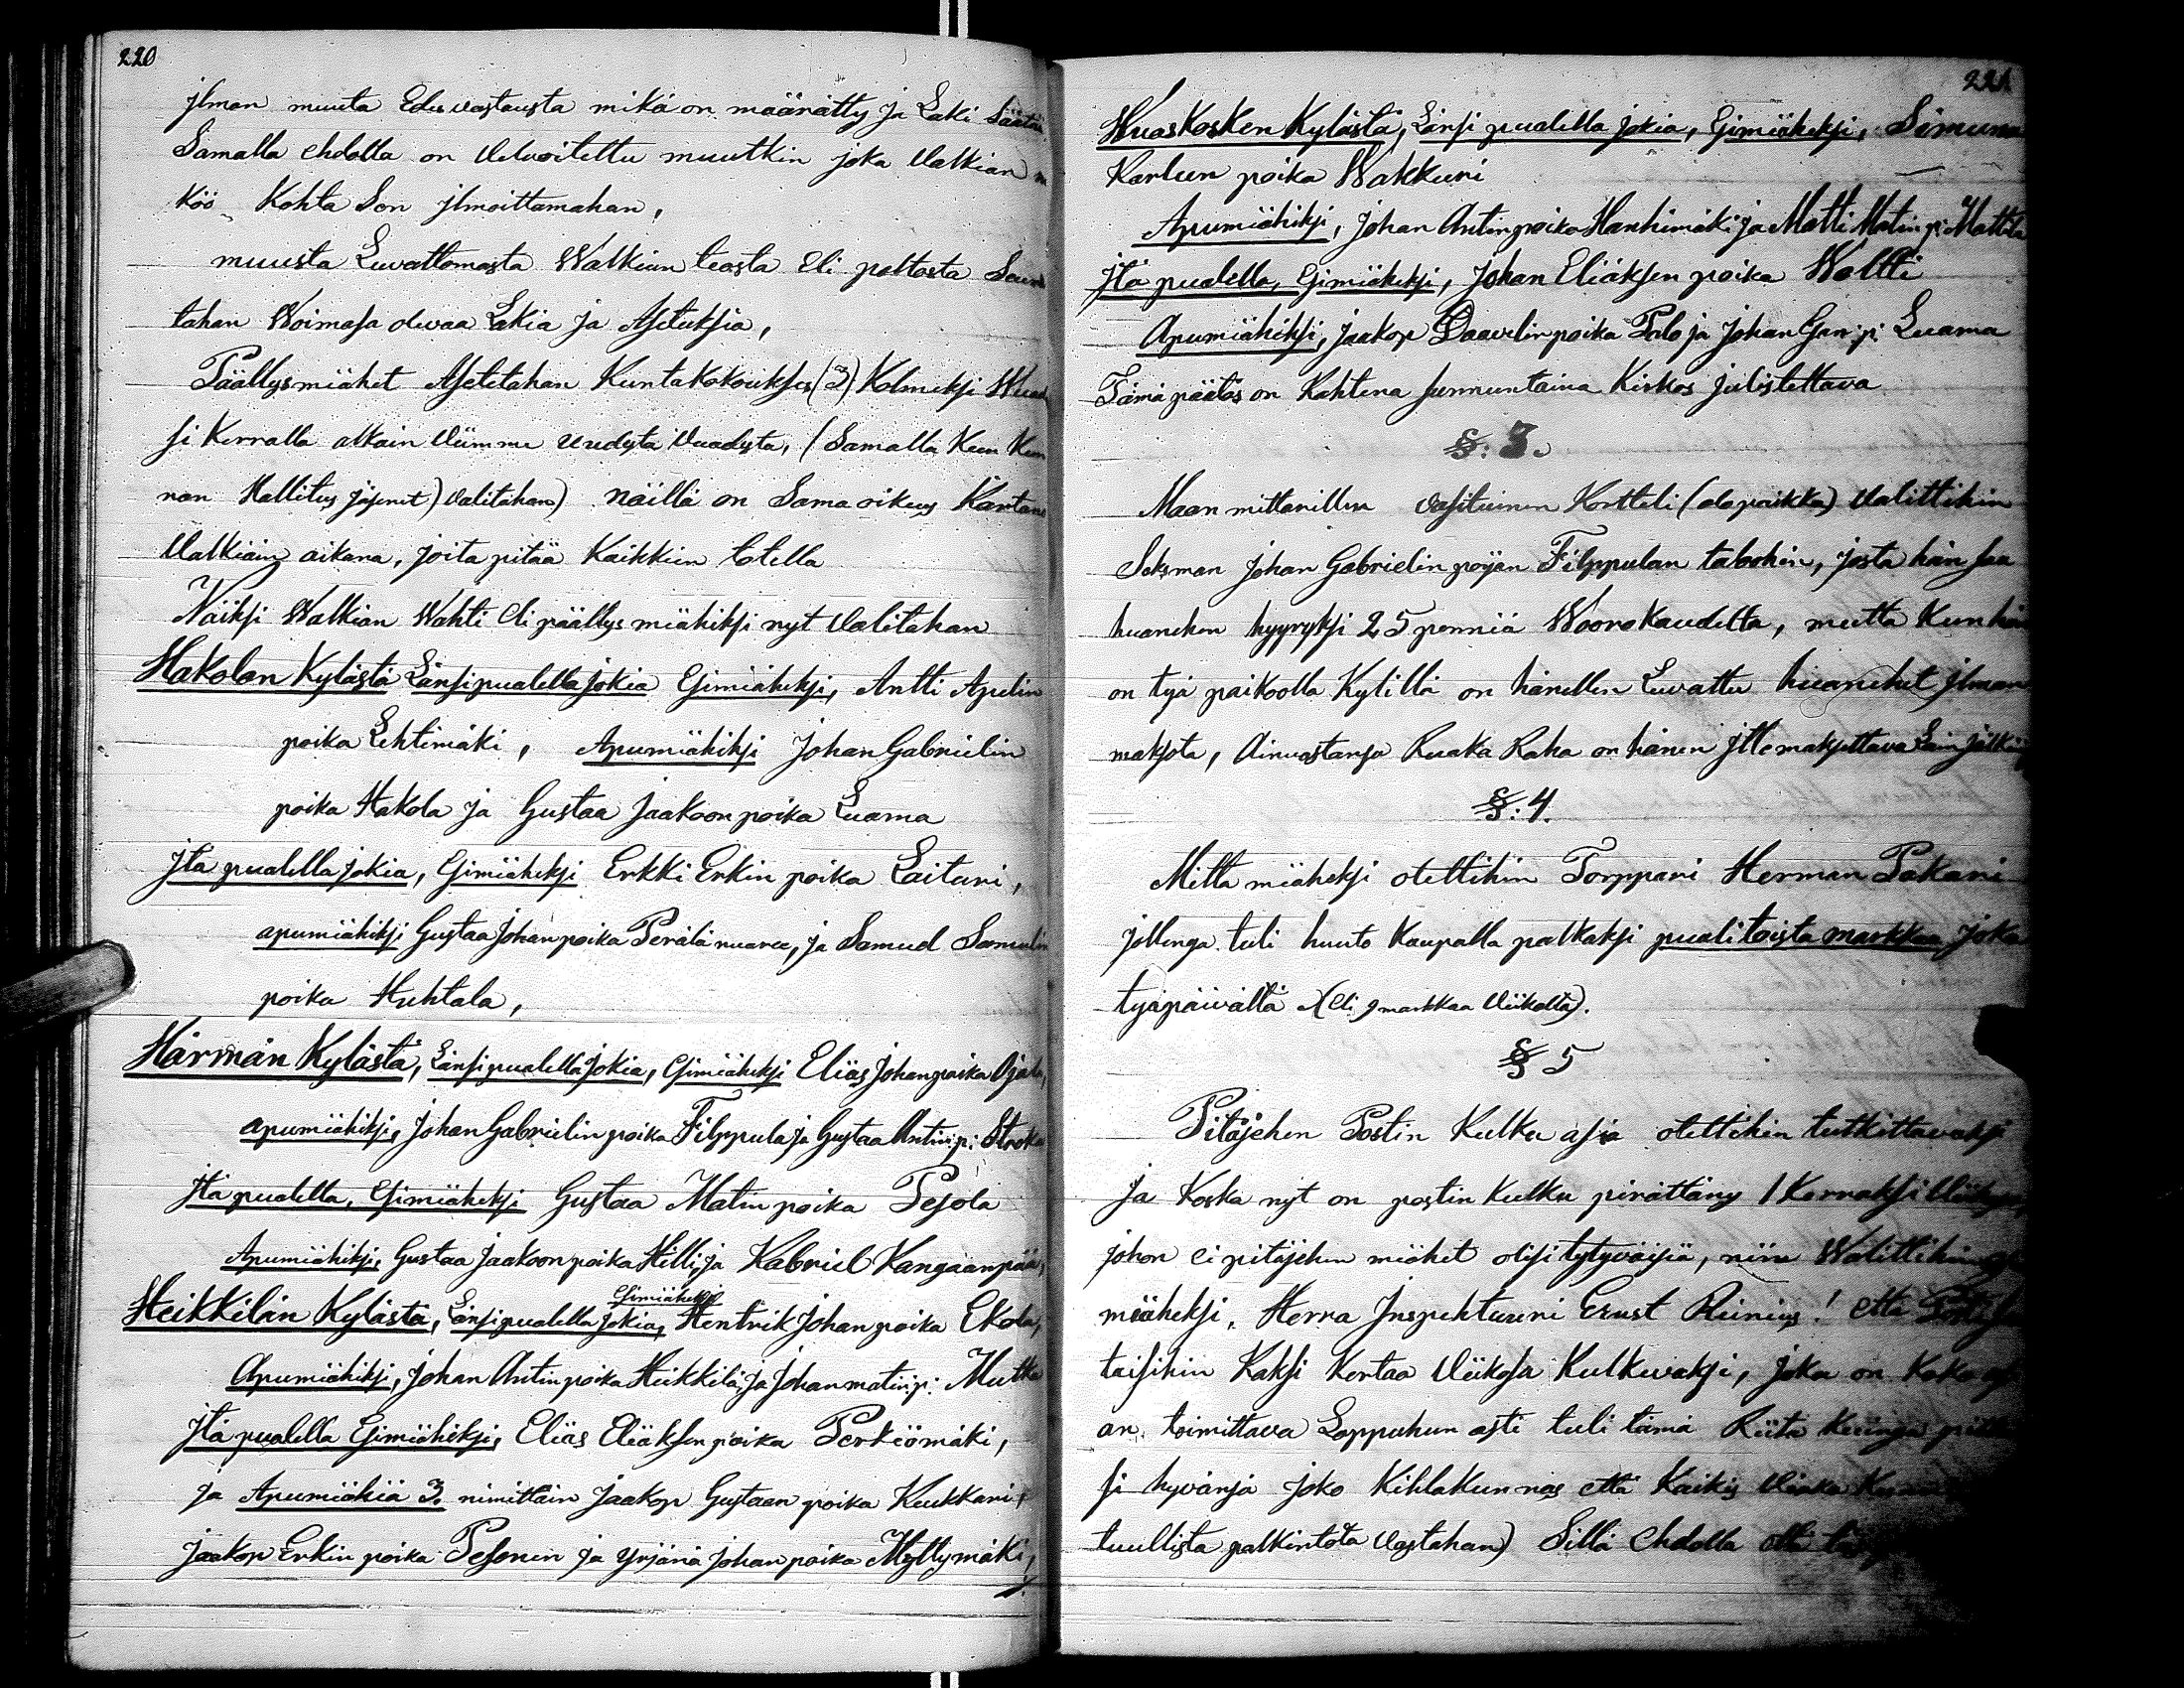 220
jlman muuta Edesvastausta mikä on määrätty ja Laki Säätää
Samalla ehdolla on Velvoitettu muutkin joka Valkian
köö Kohta Son jlmoittamahan,
muusta Luvattomasta Walkian teosta Eli poltosta
tahan Woimasa olevaa Lakia ja Asetuksia,
Päällysmiähet Asetetahan Kuntakokouksesa (3) Kolmeksi
si Kerralla alkain Viimme uudesta Vuadesta, (Samalla Kun
nan Hallitus jäsenet) Valitahan) näillä on Sama oikeus
Valkiain aikana, joita pitää Kaikkiin totella
Näiksi Walkian Wahti Eli päällys miähiksi nyt Valitahan
Hakolan Kylästä Länsipualella jokia Esimiäheksi, Antti Apelin
poika Lehtimäki, Apumiähiksi Johan Gabrielin
poika Hakola ja Gustaa Jaakoon poika Luama
jtä pualella jokia, Esimiäheksi Erkki Erkin poika Laituri,
apumiähiksi Gustaa Johanpoika Perälä nuaree, ja Samuel Samulin
poika Huhtala,
Härmän Kylästä, Länsipualella jokia, Esimiäheksi Eliäs Johanpoika Ojala,
apumiähiksi, Johan Gabrielin poika Filppula ja Gustaa Antinp:
jtä pualella, Esimiäheksi Gustaa Matin poika Pesola
Apumiähiksi, Gustaa Jaakoon poika Hilli, ja Kabriel Kangaanpää,
Esimiäheksi
Heikkilän Kylästä, Länsipualella jokia, Hentrik Johan poika Ekola,
Apumiähiksi, Johan Antin poika Heikkilä, ja Johan matinp:
jtä pualella Esimiäheksi, Eliäs Eliäksen poika Perkiömäki,
ja Apumiähiä 3. nimittäin Jaakop Gustaan poika Kuukkari,
Jaakop Erkin poika Pesonen ja Yrjänä Johan poika Myllymäki,
221
Wuoskosken Kylästä, Länsi pualella jokia, Esimiäheksi, Simuna
Karluun poika Wakkuri
Apumiähiksi, Johan Antinpoika Hanhimäki ja Matti Matin p: Mattila
jtä pualella, Esimiäheksi, Johan Eliäksen poika Waltti
Apumiähiksi, Jaakop Daavelin poika Palo ja Johan p: Luama
Tämä päätös on Kahtena sunnuntaina Kirkos julistettava
§: 3.
Maan mittarillen Kortteli (alo paikka) Valittihin
Seksman Johan Gabrielin pojan Filppulan talohin, josta hän saa
huanehen hyyryksi 25 penniä Woorokaudelta, mutta Kun hän
on tyä paikoolla Kylillä on hänellen Luvattu huanehet jlman
maksota, Ainoastansa Ruaka Raha on hänen jtte maksettava Lain jälkiin
§: 4.
Mitta miäheksi otettihin Torppari Herman Pakari
jollenga tuli huuto Kaupalla palkaksi pualitoista markkaa joka
tyäpäivältä (Eli 9 markkaa Viikolta).
§ 5
Pitäjehen Postin Kulku asia otettihin tutkittavaksi
ja Koska nyt on postin Kulku pirättäny 1 Kerraksi
johon ei pitäjehen miähet olisi tytyväisiä, niin Walittihin
miäheksi, Herra Jnspehtuuri Ernst Reinius! että
taisihin Kaksi Kertaa Viikosa Kulkevaksi, joka on
an toimittava Loppuhun asti tuli tämä
si hyvänsä joko Kihlakunnas että Kaikis
tuullista palkintota Vastahan) Sillä Ehdolla